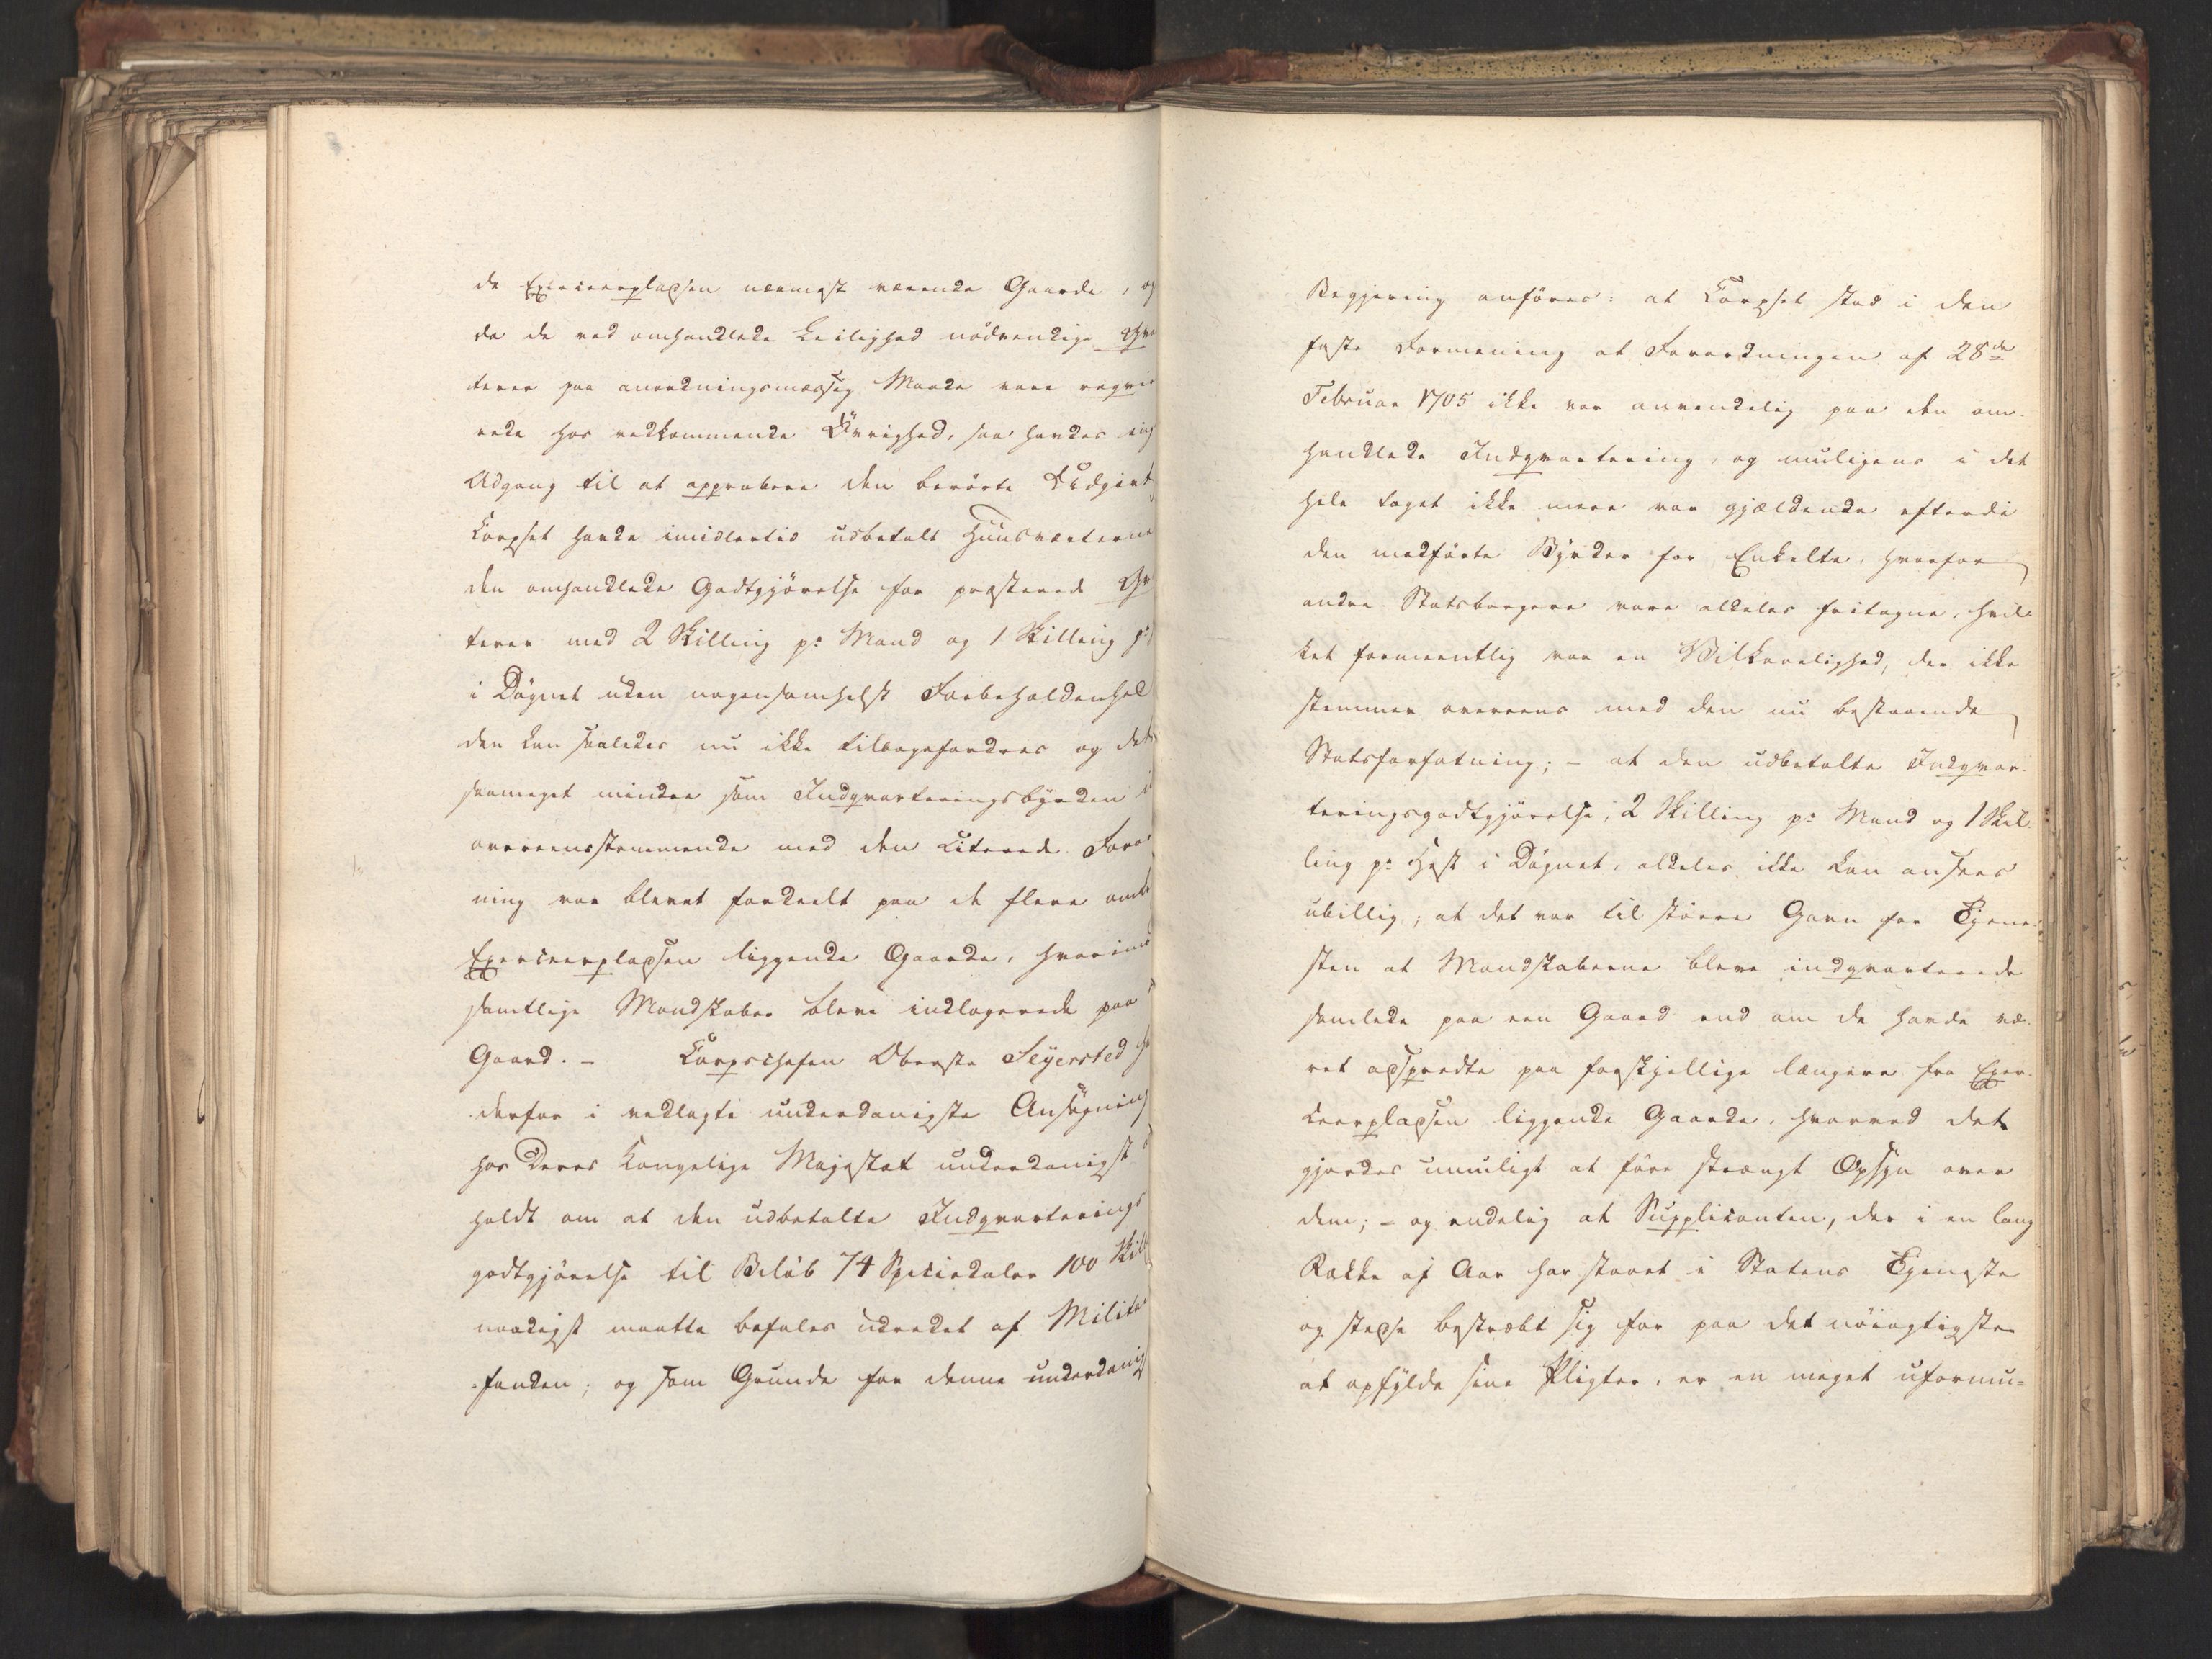 de Exerceerpladsen nærmest værende Gaarde, og
da de ved omhandlede Leilighed nødvendige Qva
terer paa anordningsmæssig Maade vare reqvire
rede hos vedkommende Øvrighed, saa havdes ing
Adgang til at approbere den berørte Udgivt
Corpset havde imidlertid udbetalt Huusværterne
den omhandlede Godtgjørelse for præsterede Qv
terer med 2 Skilling pr Mand og 1 Skilling pr
i Døgnet uden nogensomhelst Forbeholdenhed
den kan saaledes nu ikke tilbagefordres og det
saameget mindre som Indqvarteringsbyrden i
overeensstemmende med den citerede Foror
ning var blevet fordeelt paa de flere omk
Exerceerpladsen liggende Gaarde, hvorimod
samtlige Mandskaber bleve indlogerede paa
Gaard. – Corpschefen Oberste Seyersted h
derfor i vedlagte underdanigste Ansøgning
hos Deres Kongelige Majestæt underdanigst
holdt om at den udbetalte Indqvarterings
godtgjørelse til Beløb 74 Speciedaler 100 Skill
naadigst maatte befales udredet af Milita
fonden; og som Grunde for denne underdanig
Begjering anføres: at Corpset stod i den
faste Formening at Forordningen af 28de
Februar 1705 ikke var anvendelig paa den om-
handlede Indqvartering, og muligens i det
hele taget ikke mere var gjældende efterdi
den medførte Byrder for Enkelte, hvorfor
andre Statsborgere vare aldeles fritagne, hvil
ket formeentlig var en Vilkaarlighed, der ikke
stemmer overeens med den nu bestaaende
Statsforfatning; – at den udbetalte Indqvar-
teringsgodtgjørelse, 2 Skilling pr Mand og 1 Skil-
ling pr Hest i Døgnet, aldeles ikke kan ansees
ubillig; at det var til større Gavn for Tjene-
sten at Mandskaberne bleve indqvarterede
samlede paa een Gaard end om de havde væ-
ret adspredte paa forskjellige længere fra Exer-
ceerpladsen liggende Gaarde, hvorved det
gjordes umuligt at føre strængt Opsyn over
dem; – og endelig at Supplicanten, der i en lang
Række af Aar har staaet i Statens Tjeneste
og stedse bestræbt sig for paa det nøiagtigste
at opfylde sine Pligter, er en meget uformu=